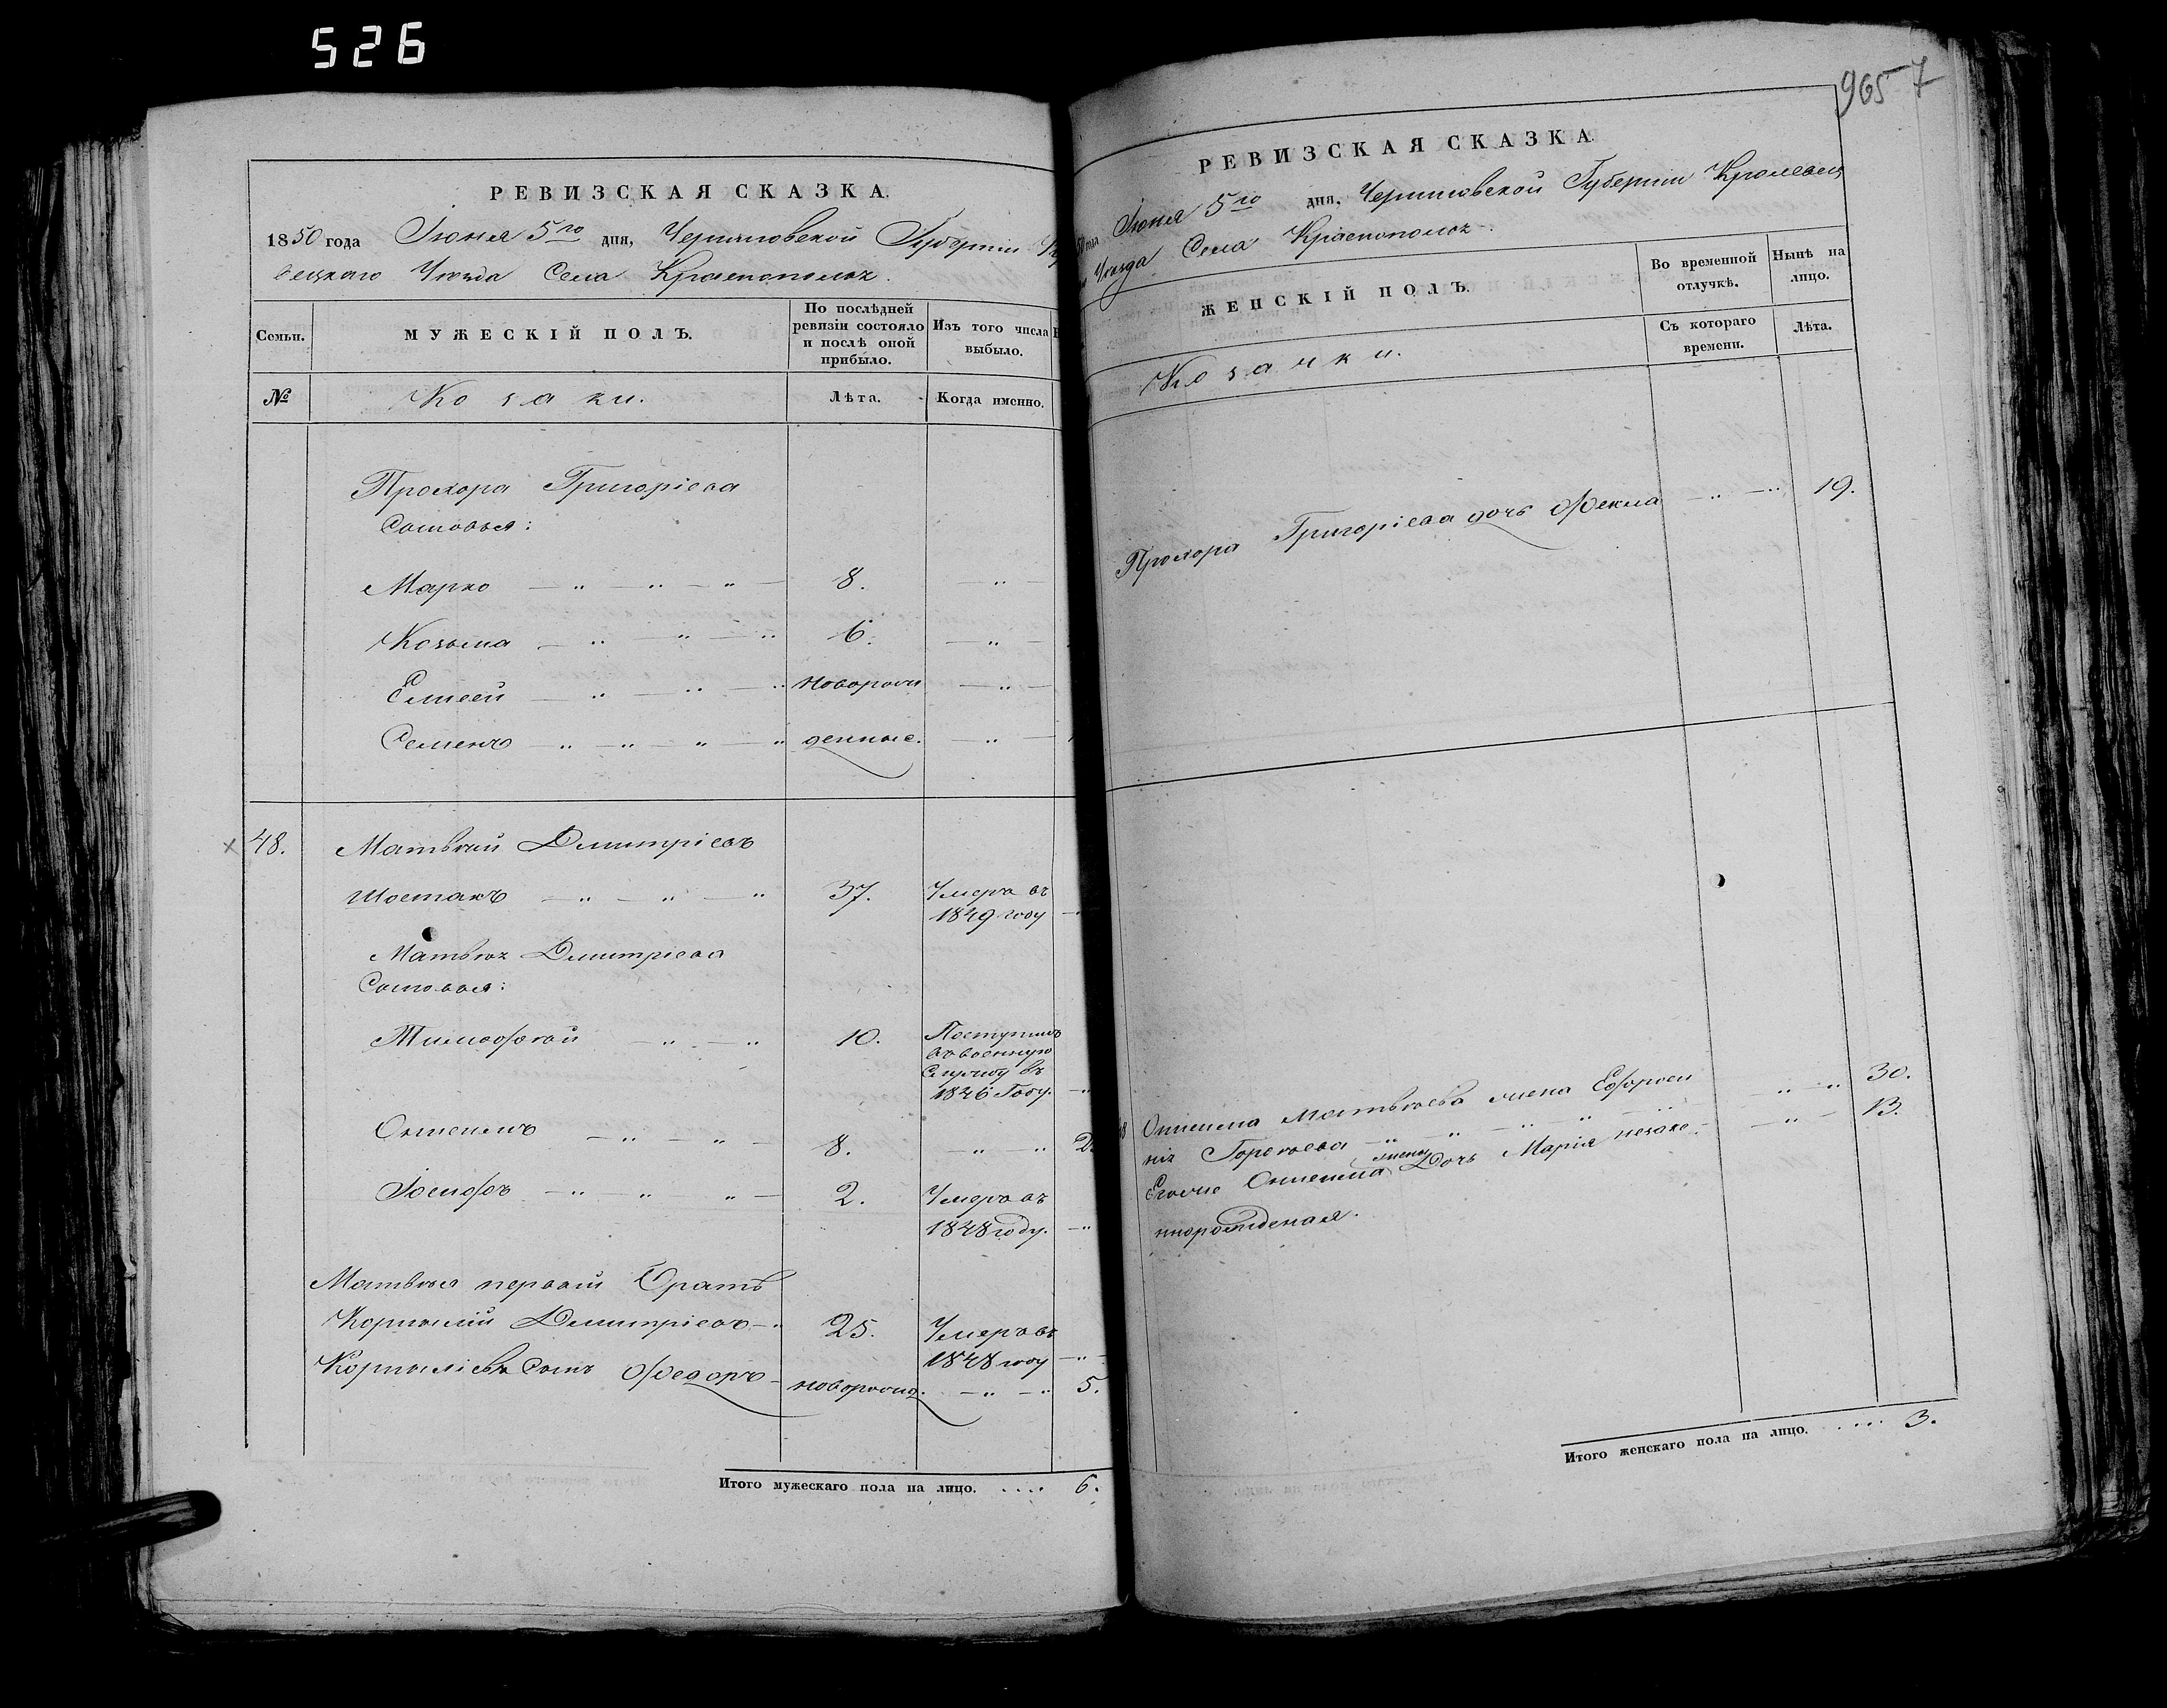 526
РЕВИЗСКАЯ СКАЗКА.
1850 года Іюня 5го дня, Черниговской Губерніи
вецкаго Уѣзда Села Краснополья.
Семьи.
МУЖЕСКІЙ ПОЛЪ.
По послѣдней ревизіи состояло и послѣ оной прибыло.
Изъ того числа выбыло.
№
Козаки.
Лѣта.
Когда именно.
Прохора Григоріева
Сыновья:
Марко 8.
Козьма 6.
Елисей новорож
Семенъ денные.
48. Матвѣй Димитріевъ
Шостакъ 37. Умеръ въ
1849 году
Матвѣя Димитріева
Сыновья:
Тимофѣй 10. Поступилъ
въ военную
службу въ
1846 Году.
8.
Іосифъ 2. Умеръ въ
1848 году.
Матвѣя первый Братъ
Корнилій Димитріевъ 25. Умеръ въ
1848 году
Корниліевъ Сынъ Федоръ новорожд. 5.
Итого мужескаго пола на лицо. .... 6.
965 7
РЕВИЗСКАЯ СКАЗКА
Іюня 5го дня, Черниговской Губерніи Кролевец
Уѣзда Села Краснополья.
ЖЕНСКІЙ ПОЛЪ.
Во временной отлучкѣ.
Нынѣ на лицо.
Козачки.
Съ котораго времени.
Лѣта.
Прохора Григоріева дочь Фекла 19.
Матвѣева жена Ефроси 30.
нія
Дочь Марія 13.
Итого женскаго пола на лицо. ..... 3.